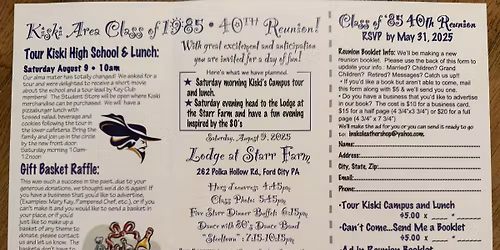 Kiski Area Class of 1985 • 40th Reunion!
Tour Kiski High School & Lunch:
Saturday August 9 • 10am
Our alma mater has totally changed! We asked for a
tour and were delighted to receive a short movie
about the school and a tour lead by Key Club
members! The Student Store will be open where Kiski
merchandise can be purchased. We will have a
pizza/burger lunch with
tossed salad, beverage and
cookies following the tour in
the lower cafeteria. Bring the
family and join us in the circle
by the new front door.
Saturday morning 10am-
12noon
Gift Basket Raffle:
This was such a success in the past, due to your
generous donations, we thought we'd do it again! If
you have a business that you'd like to advertise,
(Examples: Mary Kay, Pampered Chef, etc.), or if you
can't make it and you would like to send a basket in
your place, or if you'd
just like to make up a
basket of any theme to
donate, please contact
us and let us know. The
With great excitement and anticipation
you are invited for a day of fun!
Here's what we have planned.
★ Saturday morning Kiski's Campus tour
and lunch.
★ Saturday evening head to the Lodge at
the Starr Farm and have a fun evening
inspired by the 80's
Saturday, August 9, 2025
Lodge at Starr Farm
262 Polka Hollow Rd, Ford City PA
Hors d'oeuvres: 4:45pm
Class Photo: 5:45pm
Five Starr Dinner Buffet: 6:15pm
Dance with 80's Dance Band
"Steeltown": 7:15-10:15pm
Class of '85 40th Reunion
RSVP by May 31, 2025
Reunion Booklet Info: We'll be making a new
reunion booklet. Please use the back of this form to
update your info. Married? Children? Grand
Children? Retired? Messages? Catch us up!!
• If you'd like a book but aren't able to come, mail
this form along with $5 & we'll send you one.
• Do you have a business that you'd like to advertise
in our book? The cost is $10 for a business card,
$15 for half page (4 3/4"x3 3/4") or $20 for a full
page (4 3/4" x 7 3/4")
We'll make the ad for you or you can send is ready to go
to: inekoleathershop@yahoo.com.
Name:
Address:
City, State, Zip:
Email:
Phone:
•Tour Kiski Campus and Lunch
$5.00 x ____ = ____
•Can't Come...Send Me a Booklet
$5.00 x ____ = ____